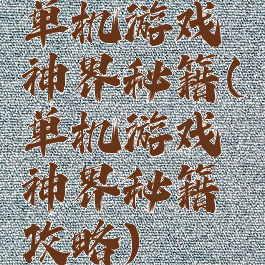 单机游戏
神界秘籍(
单机游戏
神界秘籍
攻略)